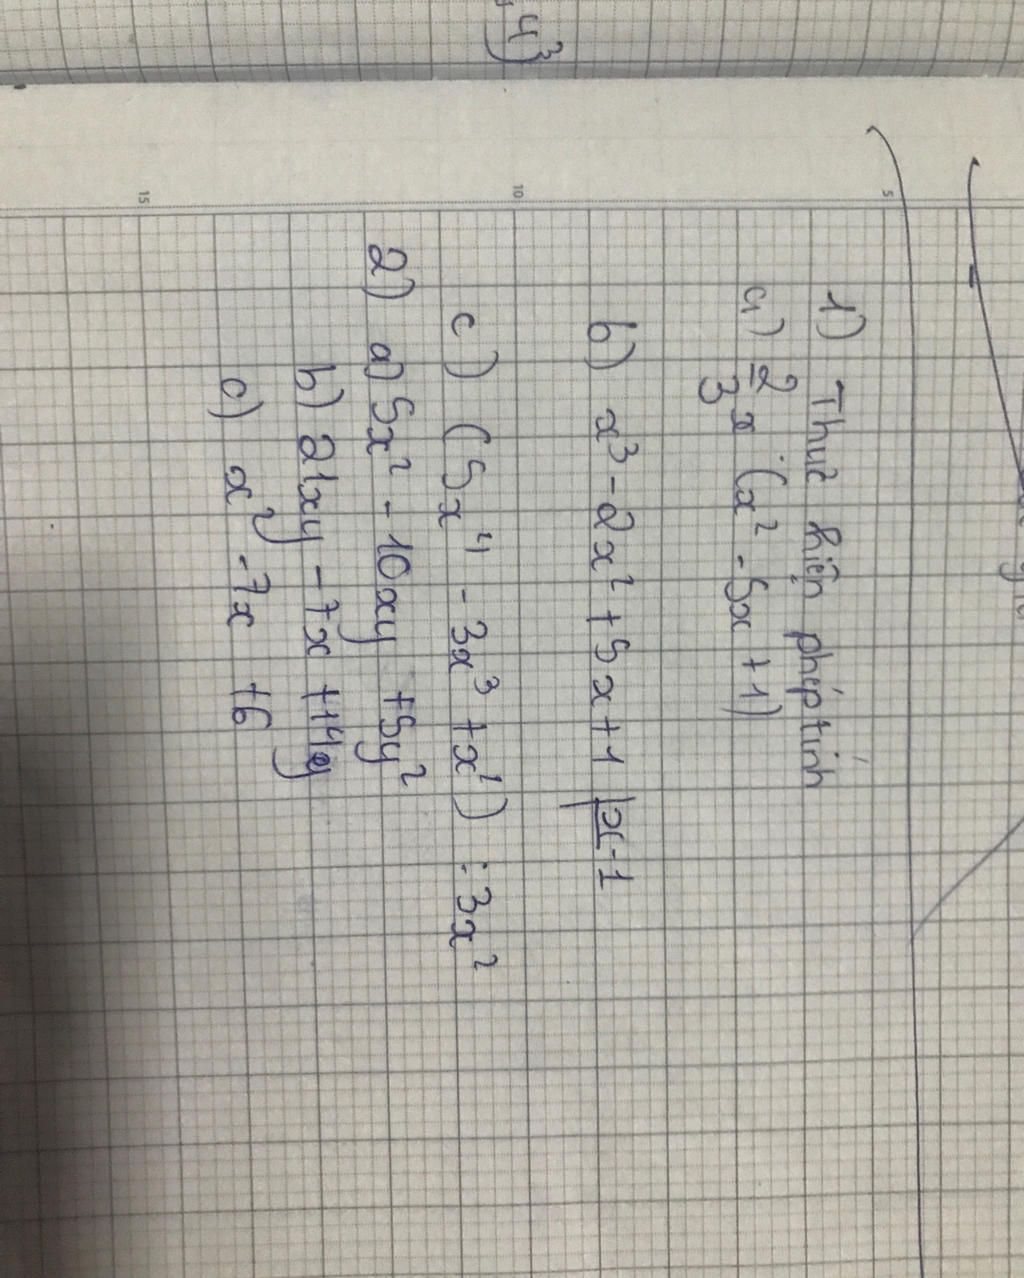 4³)
5
10
15
1) Thực hiện phép tính
a) 2/3 x (x² - 5x + 1)
b) x³ - 2x² + 5x + 1 | x - 1
c) (5x⁴ - 3x³ + x²) : 3x²
2) a) 5x² - 10xy + 5y²
b) 21xy - 7x + 14y
c) x² - 7x + 6